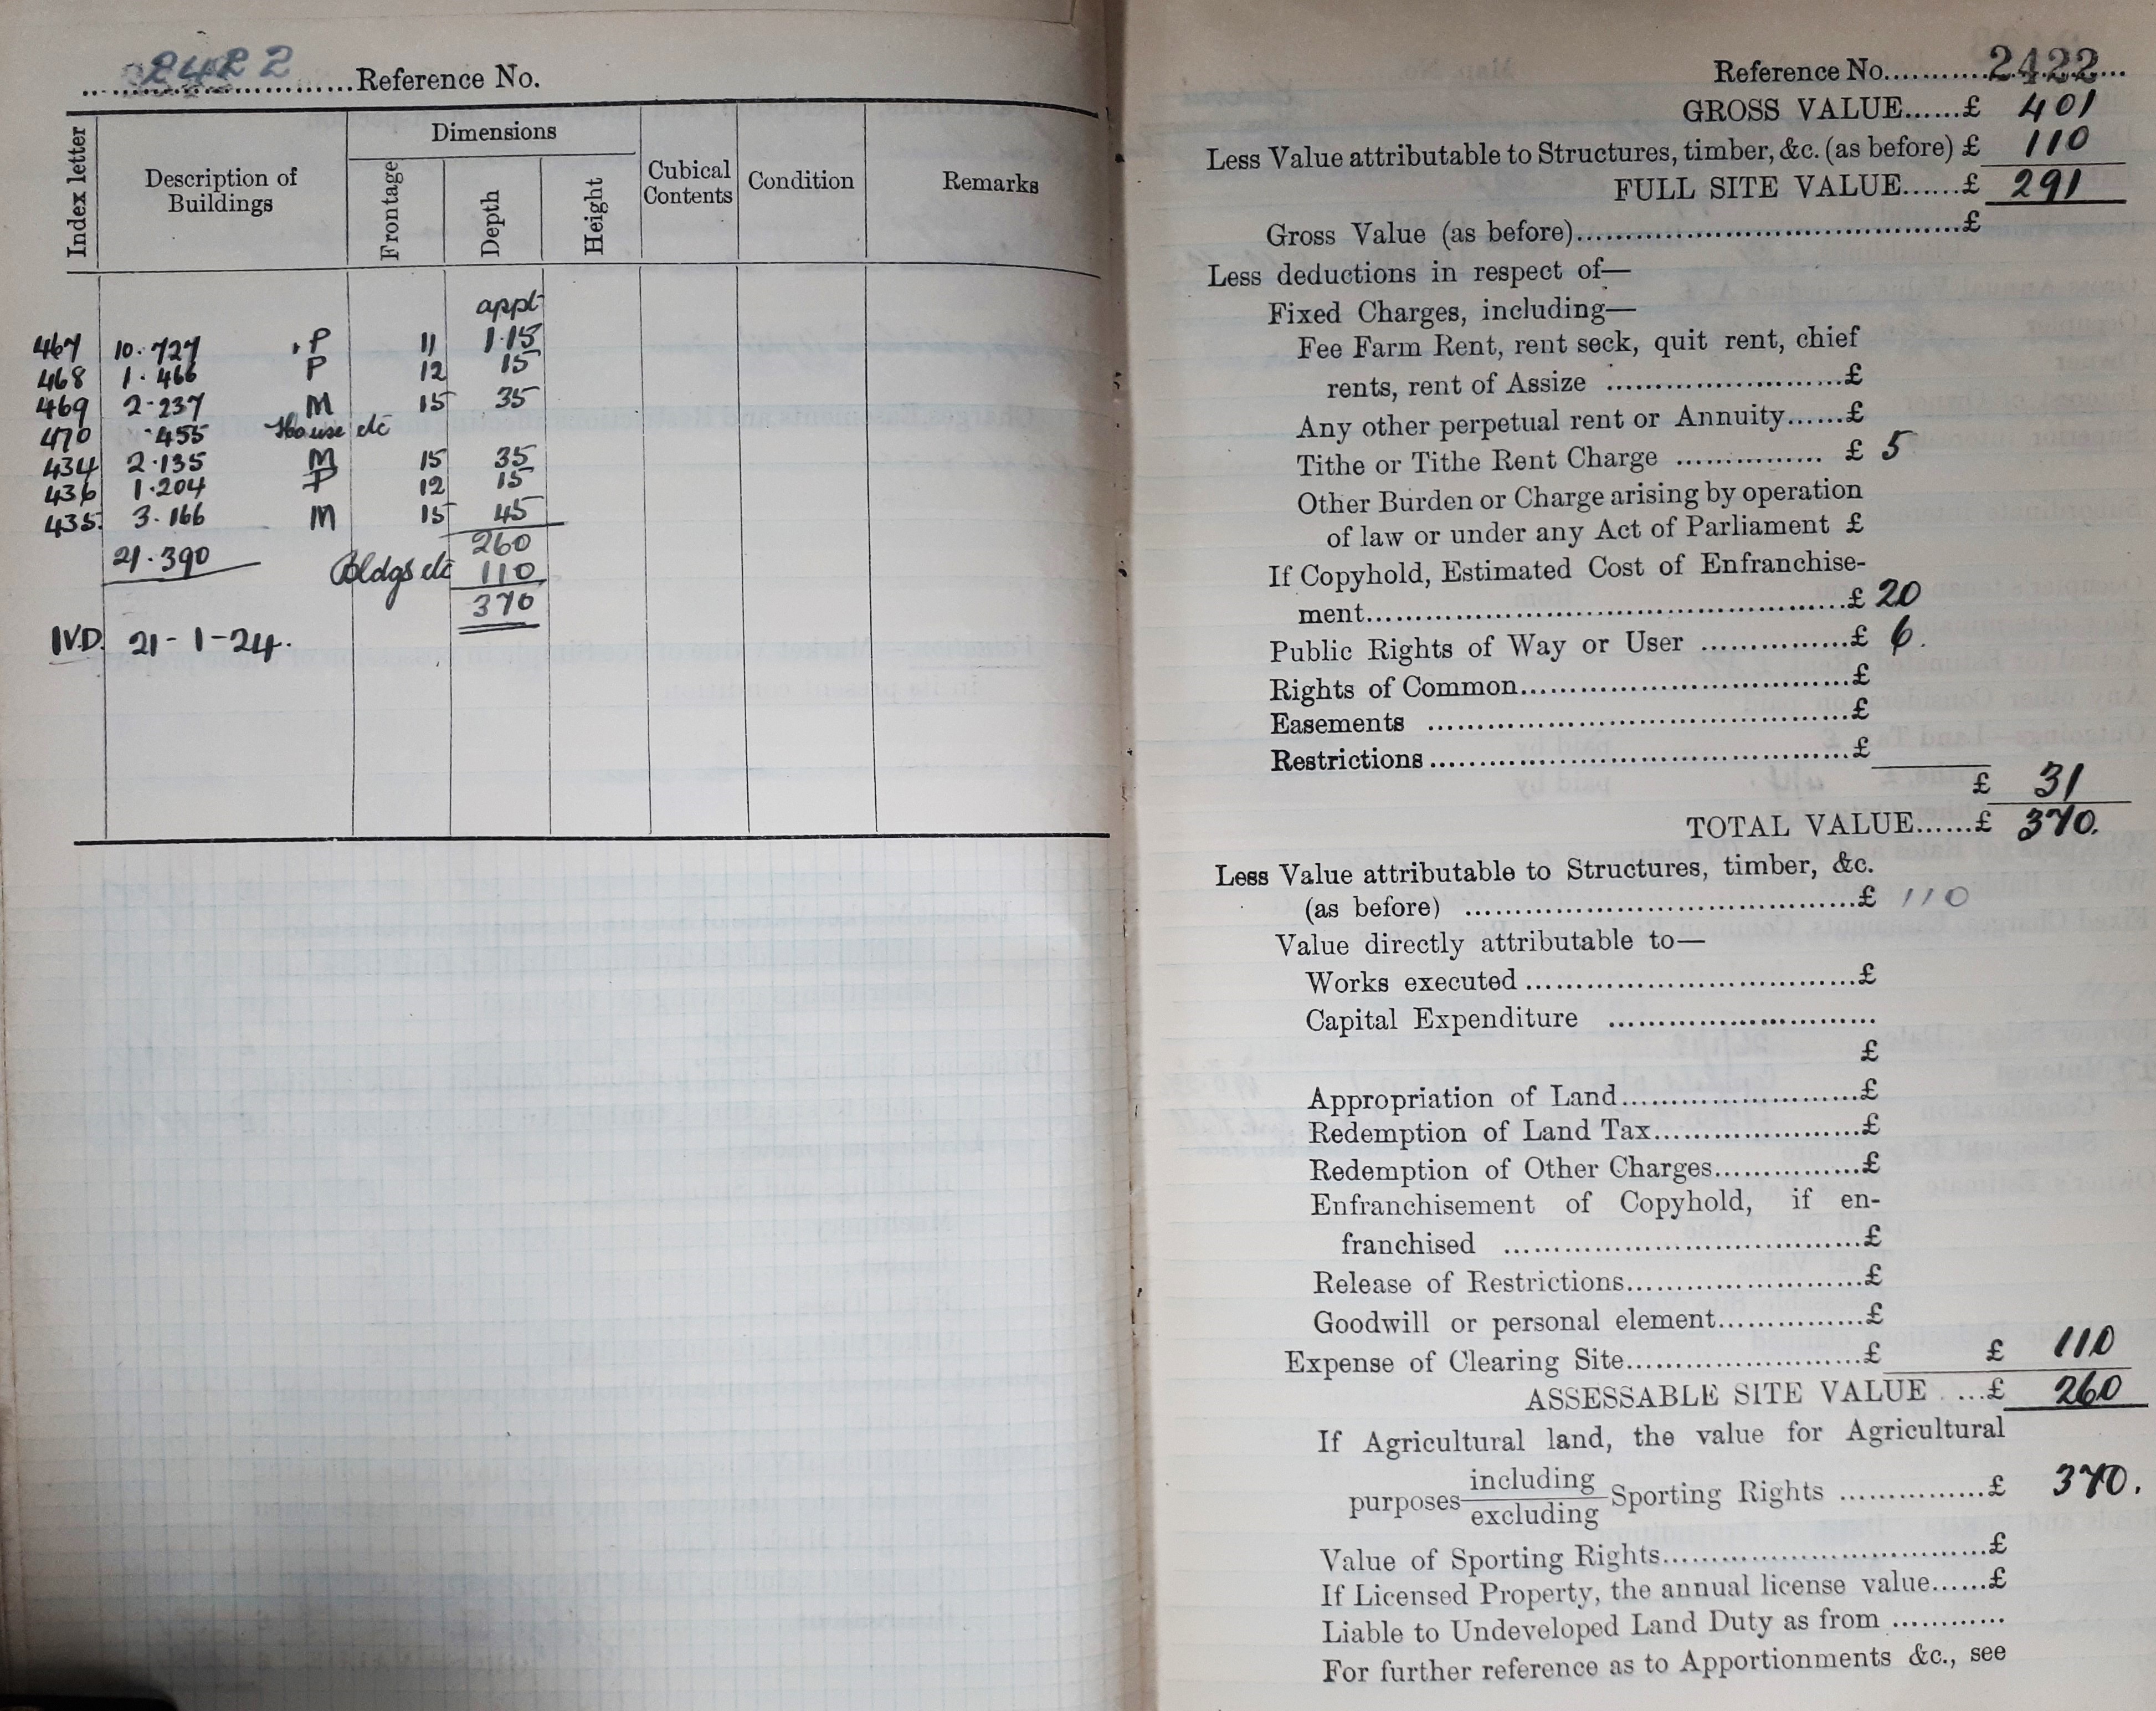 2422 Reference No.
Index letter
Description of Buildings
Dimensions
Frontage
Depth
Height
Cubical Contents
Condition
Remarks
appt
467 10.727 P 11 1.15
468 1.466 P 12 15
469 2.237 M 15 35
470 .455 House etc
434 2.135 M 15 35
436 1.204 P 12 15
435. 3.166 M 15 45
21.390 260
Bldgs etc 110
370
IVD. 21-1-24.
Reference No. 2422
GROSS VALUE......£ 401
Less Value attributable to Structures, timber, &c. (as before) £ 110
FULL SITE VALUE......£ 291
Gross Value (as before)..........£
Less deductions in respect of—
Fixed Charges, including—
Fee Farm Rent, rent seck, quit rent, chief
rents, rent of Assize ..........£
Any other perpetual rent or Annuity......£
Tithe or Tithe Rent Charge .......... £ 5
Other Burden or Charge arising by operation
of law or under any Act of Parliament £
If Copyhold, Estimated Cost of Enfranchise-
ment..........£ 20
Public Rights of Way or User ..........£ 6.
Rights of Common..........£
Easements ..........£
Restrictions..........£
£ 31
TOTAL VALUE......£ 370.
Less Value attributable to Structures, timber, &c.
(as before) ..........£ 110
Value directly attributable to—
Works executed..........£
Capital Expenditure ..........
£
Appropriation of Land..........£
Redemption of Land Tax..........£
Redemption of Other Charges..........£
Enfranchisement of Copyhold, if en-
franchised ..........£
Release of Restrictions..........£
Goodwill or personal element..........£
Expense of Clearing Site..........£ £ 110
ASSESSABLE SITE VALUE ...£ 260
If Agricultural land, the value for Agricultural
purposes including
excluding Sporting Rights ..........£ 370.
Value of Sporting Rights..........£
If Licensed Property, the annual license value......£
Liable to Undeveloped Land Duty as from ..........
For further reference as to Apportionments &c., see